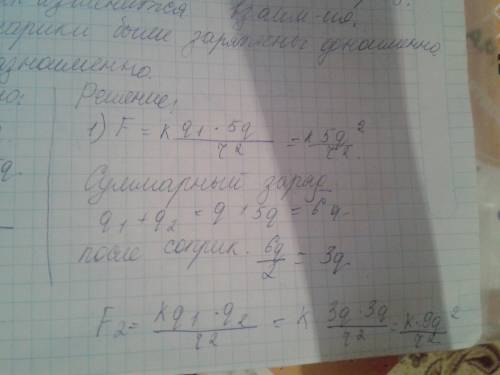 изменится взаим-ие.
шарики были заряжены одноименно
разноименно.
Решение:
1) F = k q1 · 5q / r² = k 5q² / r².
Суммарный заряд
q1 + q2 = q + 5q = 6q.
после соприк. 6q / 2 = 3q.
F2 = k q1 · q2 / r² = k 3q · 3q / r² = k · 9q² / r²